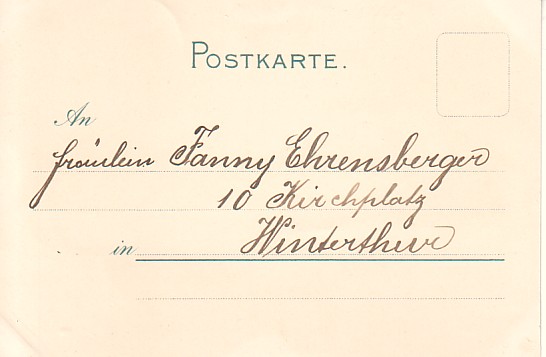 POSTKARTE.
An
fräulein Fanny Ehrensberger
10 Kirchplatz
in Winterthur